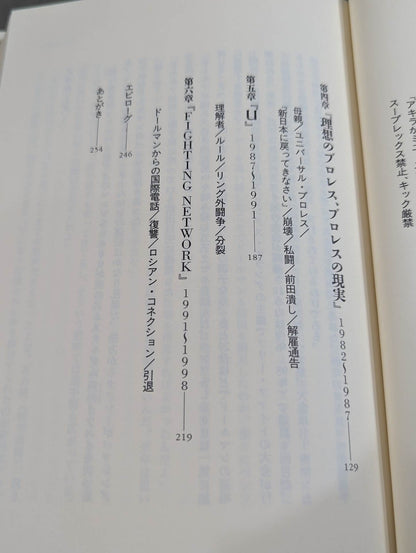 「アキラがミス
スープレックス禁止、キック厳禁
第四章 『理想のプロレス、プロレスの現実』 1982〜1987 ── 129
母親／ユニバーサル・プロレス／
「新日本に戻ってきなさい」／崩壊／私闘／前田潰し／解雇通告
第五章 『U』 1987〜1991 ── 187
理解者／ルール／リング外闘争／分裂
第六章 『FIGHTING NETWORK』 1991〜1998 ── 219
ドールマンからの国際電話／復讐／ロシアン・コネクション／引退
エピローグ ── 246
あとがき ── 254